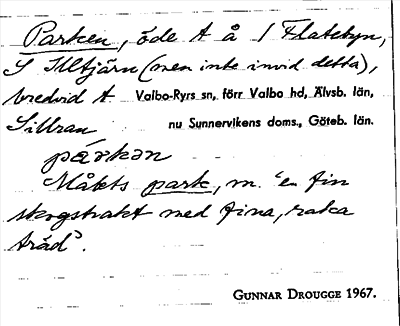 Parken, öde t å 1 Flatebyn,
S Illtjärn (men inte invid detta),
bredvid t Valbo-Ryrs sn, förr Valbo hd, Älvsb. län,
Sillran nu Sunnervikens doms., Göteb. län.
párkən
Målets park, m. "en fin
skogstrakt med fina, raka
träd".
GUNNAR DROUGGE 1967.